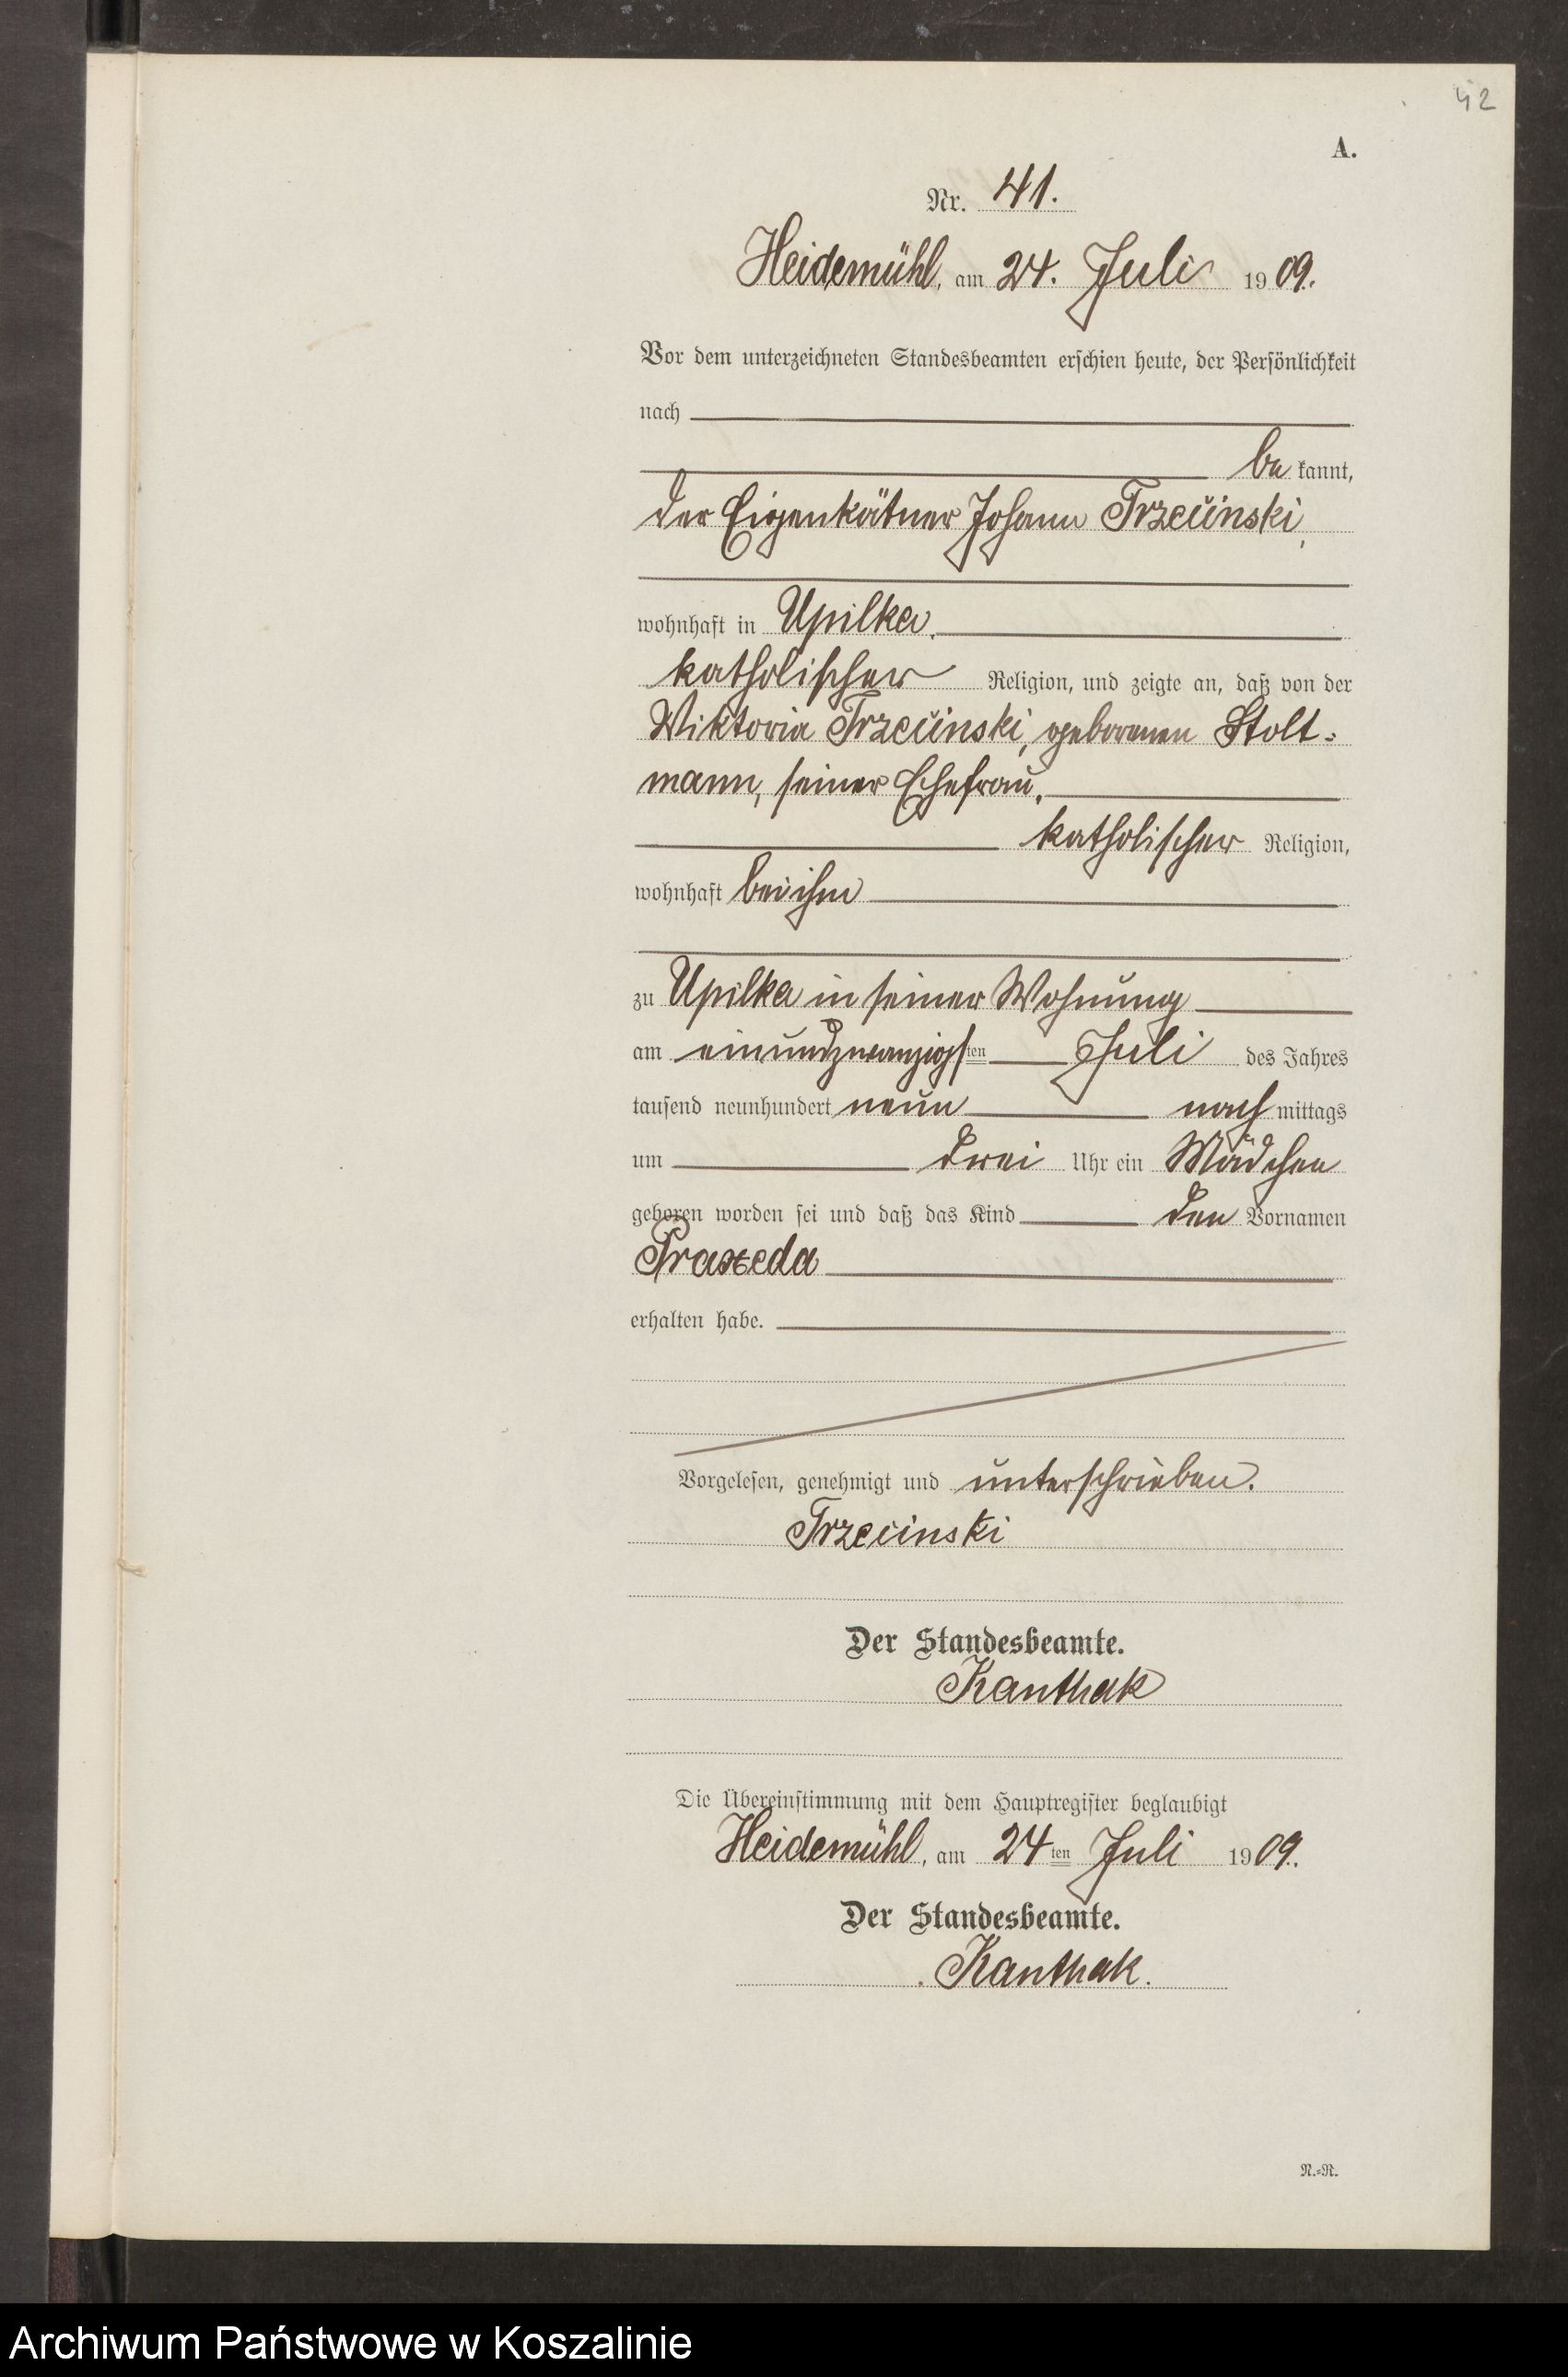 42
A.
Nr. 41.
Heidemühl, am 24. Juli 1909.
Vor dem unterzeichneten Standesbeamten erschien heute, der Persönlichkeit
nach
be kannt,
der Eigenkätner Johann Trzecinski,
wohnhaft in Upilka,
katholischer Religion, und zeigte an, daß von der
Wiktoria Trzecinski, geborenen Stolt-
mann, seiner Ehefrau,
katholischer Religion,
wohnhaft bei ihm
zu Upilka in seiner Wohnung
am einundzwanzigsten Juli des Jahres
tausend neunhundert neun nachmittags
um drei Uhr ein Mädchen
geboren worden sei und daß das Kind den Vornamen
Praxeda
erhalten habe.
Vorgelesen, genehmigt und unterschrieben.
Trzecinski
Der Standesbeamte.
Kanthak
Die Übereinstimmung mit dem Hauptregister beglaubigt
Heidemühl, am 24ten Juli 1909.
Der Standesbeamte.
Kanthak.
N.-R.
Archiwum Państwowe w Koszalinie